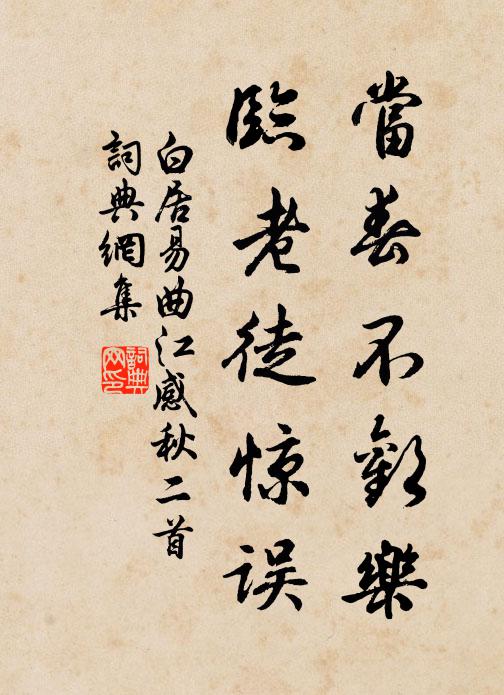 當春不歡樂
臨老徒惊误
白居易曲江感秋二首
詞典網集
詞典网印